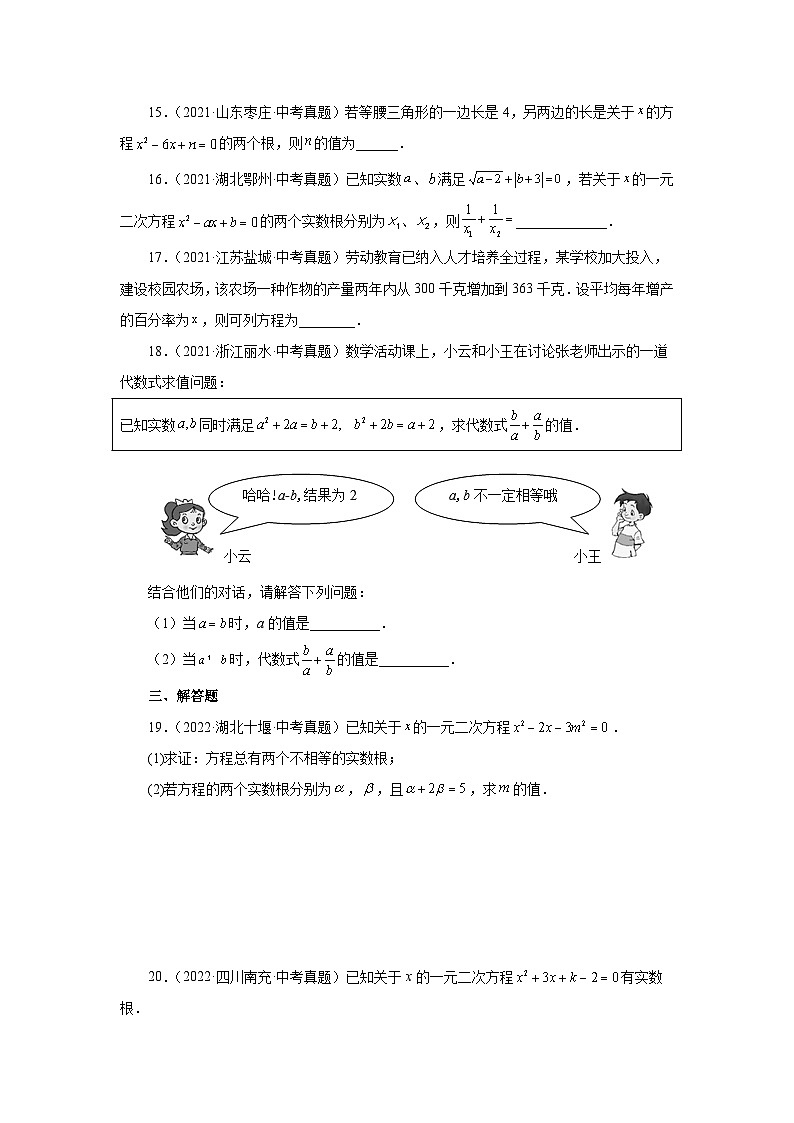 15.（2021·山东枣庄·中考真题）若等腰三角形的一边长是 4，另两边的长是关于 x 的方
程 x² − 6x + n = 0 的两个根，则 n 的值为______.
16.（2021·湖北鄂州·中考真题）已知实数 a、b 满足 √(a−2) + |b+3| = 0，若关于 x 的一元
二次方程 x² − ax + b = 0 的两个实数根分别为 x₁、x₂，则 1/x₁ + 1/x₂ = _____________.
17.（2021·江苏盐城·中考真题）劳动教育已纳入人才培养全过程，某学校加大投入，
建设校园农场，该农场一种作物的产量两年内从 300 千克增加到 363 千克.设平均每年增产
的百分率为 x，则可列方程为________.
18.（2021·浙江丽水·中考真题）数学活动课上，小云和小王在讨论张老师出示的一道
代数式求值问题：
已知实数 a,b 同时满足 a² + 2a = b + 2, b² + 2b = a + 2，求代数式 b/a + a/b 的值.
哈哈!a-b,结果为 2
a, b 不一定相等哦
小云
小王
结合他们的对话，请解答下列问题：
（1）当 a = b 时，a 的值是__________.
（2）当 a ¹ b 时，代数式 b/a + a/b 的值是__________.
三、解答题
19.（2022·湖北十堰·中考真题）已知关于 x 的一元二次方程 x² − 2x − 3m² = 0.
(1)求证：方程总有两个不相等的实数根；
(2)若方程的两个实数根分别为 α，β，且 α + 2β = 5，求 m 的值.
20.（2022·四川南充·中考真题）已知关于 x 的一元二次方程 x² + 3x + k − 2 = 0 有实数
根.